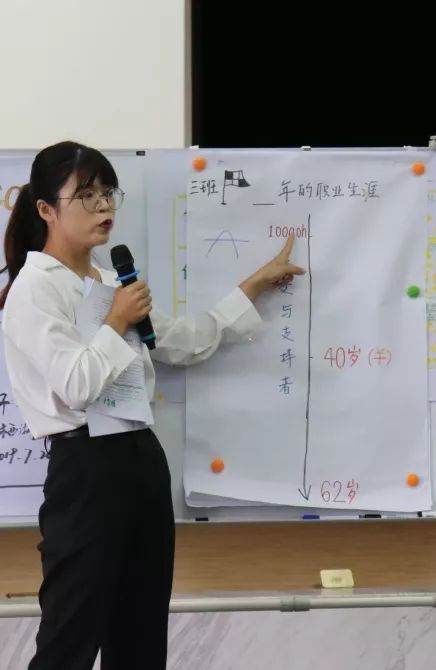 三班 __年的职业生涯
10000h
与支持者
40岁(半)
62岁
2019.7.2